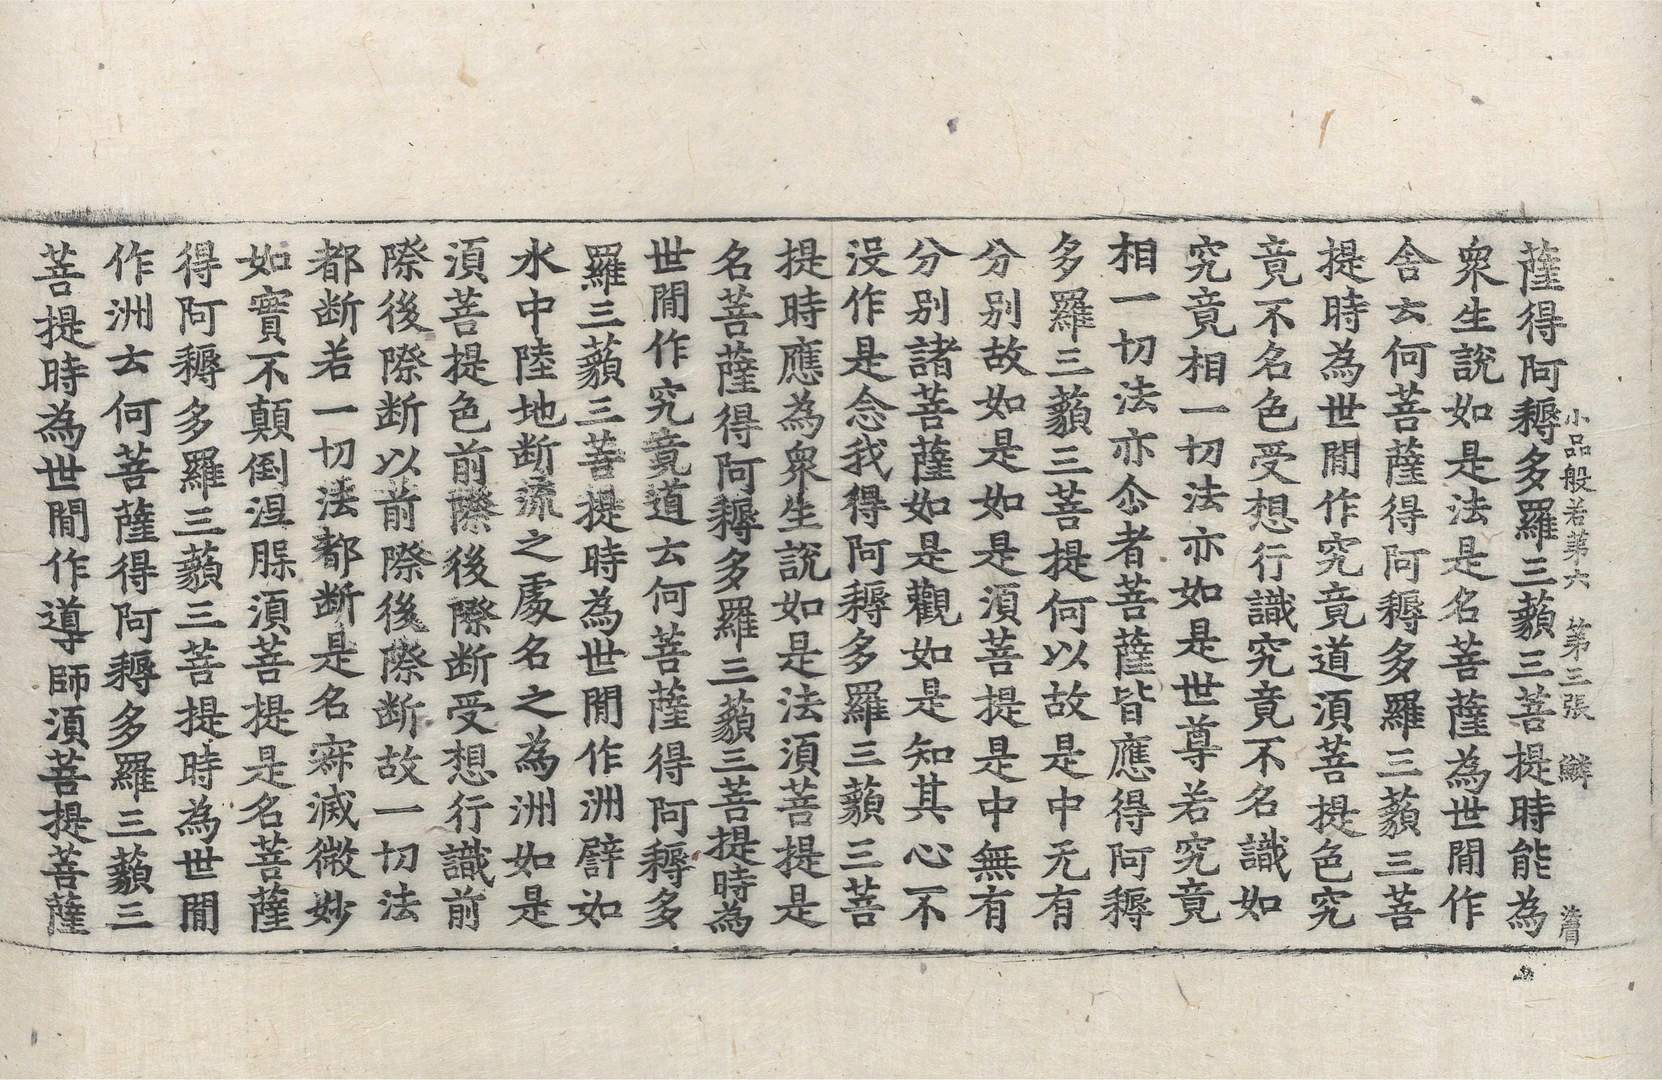 小品般若第六 第三張 鱗
薩得阿耨多羅三藐三菩提時能為
衆生說如是法是名菩薩為世閒作
舍云何菩薩得阿耨多羅三藐三菩
提時為世閒作究竟道湏菩提色究
竟不名色受想行識究竟不名識如
究竟相一切法亦如是世尊若究竟
相一切法亦尒者菩薩皆應得阿耨
多羅三藐三菩提何以故是中无有
分别故如是如是湏菩提是中無有
分别諸菩薩如是觀如是知其心不
没作是念我得阿耨多羅三藐三菩
提時應為衆生說如是法湏菩提是
名菩薩得阿耨多羅三藐三菩提時為
世閒作究竟道云何菩薩得阿耨多
羅三藐三菩提時為世閒作洲譬如
水中陸地断流之處名之為洲如是
湏菩提色前際後際断受想行識前
際後際断以前際後際断故一切法
都断若一切法都断是名寂滅微妙
如實不顛倒涅槃湏菩提是名菩薩
得阿耨多羅三藐三菩提時為世閒
作洲云何菩薩得阿耨多羅三藐三
菩提時為世閒作導師湏菩提菩薩